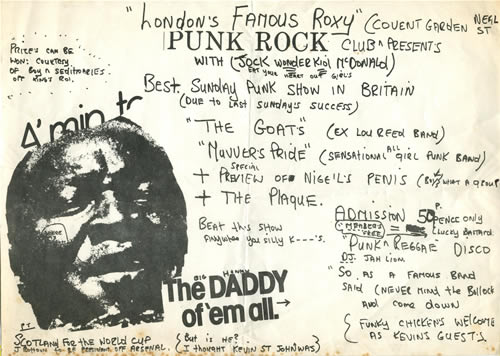 "LONDON'S FAMOUS ROXY" (COVENT GARDEN NEAL ST
PUNK ROCK CLUB PRESENTS
WITH (JOCK WONDER KID McDONALD)
EAT YOUR HEART OUT GIRLS
BEST SUNDAY PUNK SHOW IN BRITAIN
(DUE TO LAST SUNDAY'S SUCCESS)
"THE GOATS" (EX LOU REED BAND)
"MUVVER'S PRIDE" (SENSATIONAL ALL GIRL PUNK BAND)
+ SPECIAL PREVIEW OF NIGEIL'S PENIS (BOY WHAT A GROUP
+ THE PLAQUE.
PRIZES CAN BE
WON: COURTESY
OF BOY n SEDITIONARIES
OFF KINGS RD,
A' min tr
BEAT THIS SHOW
ANYWHERE YOU SILLY K---'S.
ADMISSION 50P. PENCE ONLY
(MEMBERS FREE) = LUCKY BASTARDS
"PUNK n REGGAE" DISCO
D.J. JAH LION
"SO. AS A FAMOUS BAND
SAID (NEVER MIND THE BULLOCK
AND COME DOWN
{ FUNKY CHICKENS WELCOME
AS KEVIN'S GUESTS.
BIG
The DADDY
of 'em all.→
P.T.
SCOTLAND FOR THE WORLD CUP
OFF ARSENAL.
{ BUT IS HE?
(I THOUGHT KEVIN ST JOHN WAS)